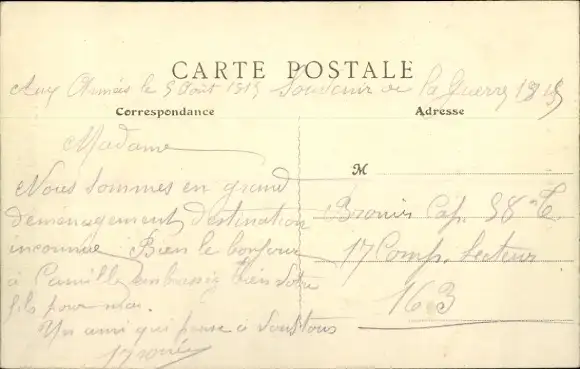 CARTE POSTALE
Aux Armées le 5 Août 1915 Souvenir de la Guerre 1915
Correspondance
Adresse
Madame
Nous sommes en grand
demenagement destination
inconnue Bien le bonjour
à Camille embrassez bien votre
fils pour moi
Un ami qui pense à vous tous
M
Cap. 58e T
17 Comp. Secteur
163